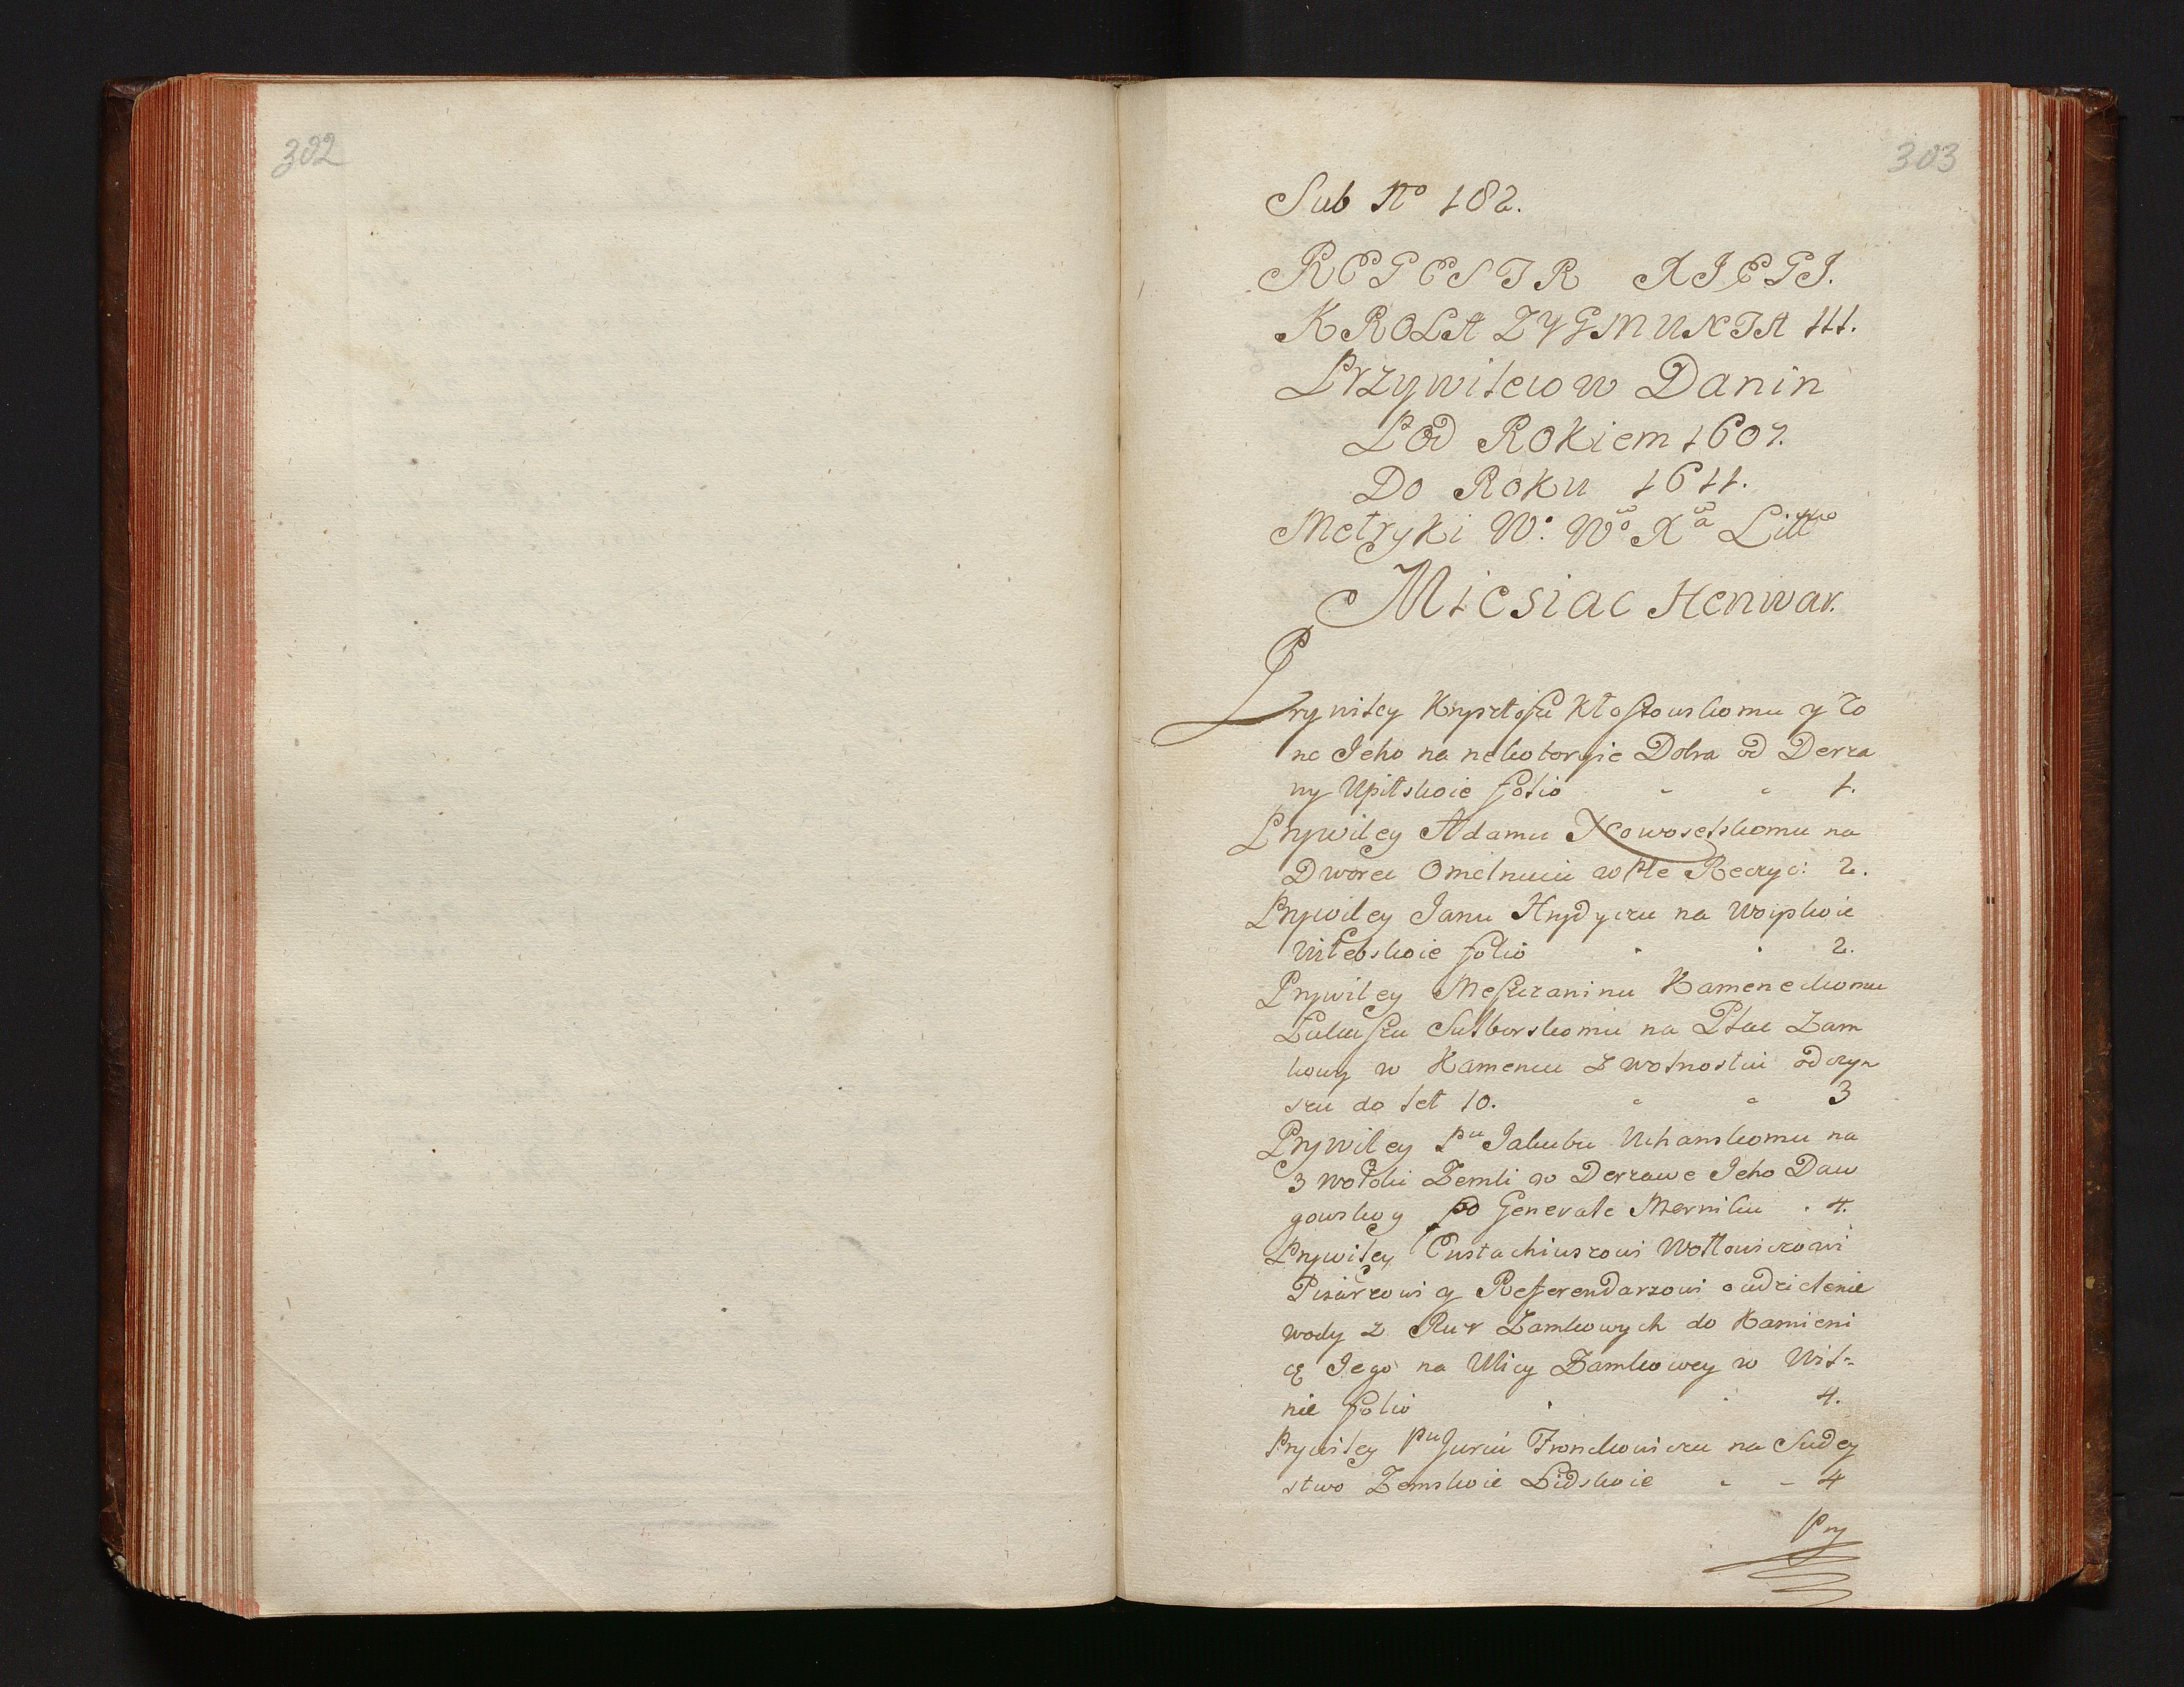 302
303
Sub No 182.
REGESTR XIEGI.
KROLA ZYGMUNTA III.
Przywilelow Danin
Pod Rokiem 1607.
Do Roku 1611.
Metryki W: Wo Xa Litto
Miesiac Henwar.
Prywiley Krysztofu Kłoszowskomu y Zo
ne Jeho na nekotoryie Dobra od Derza
wy Upitskoie folio 1.
Prywiley Adamu Nowoselskomu na
Dworec w Pte Reczyc: 2.
Prywiley Janu Hrydyczu na Woyskoie
Witebskoie folio 2.
Prywiley Meszczaninu Kameneckomu
Łukaszu Sutborskomu na Płac Zam
kowy w Kamencu z wolnostiu od czyn
szu do let 10. 3
Prywiley Pu Jakubu Uchanskomu na
3 Wołoki Zemli w Derzawe Jeho Daw
gowskoy po Generale Merniku 4.
Prywiley Eustachiuszowi Wołłowiczowi
Pisarzowi y Referendarzowi o udzielenie
wody z Rur Zamkowych do Kamieni
cę Jego na Ulicy Zamkowey w Wil=
nie folio 4.
Prywiley Pu Juriu Fronckowiczu na Sudey
stwo Zemskoie Lidskoie 4
Pry